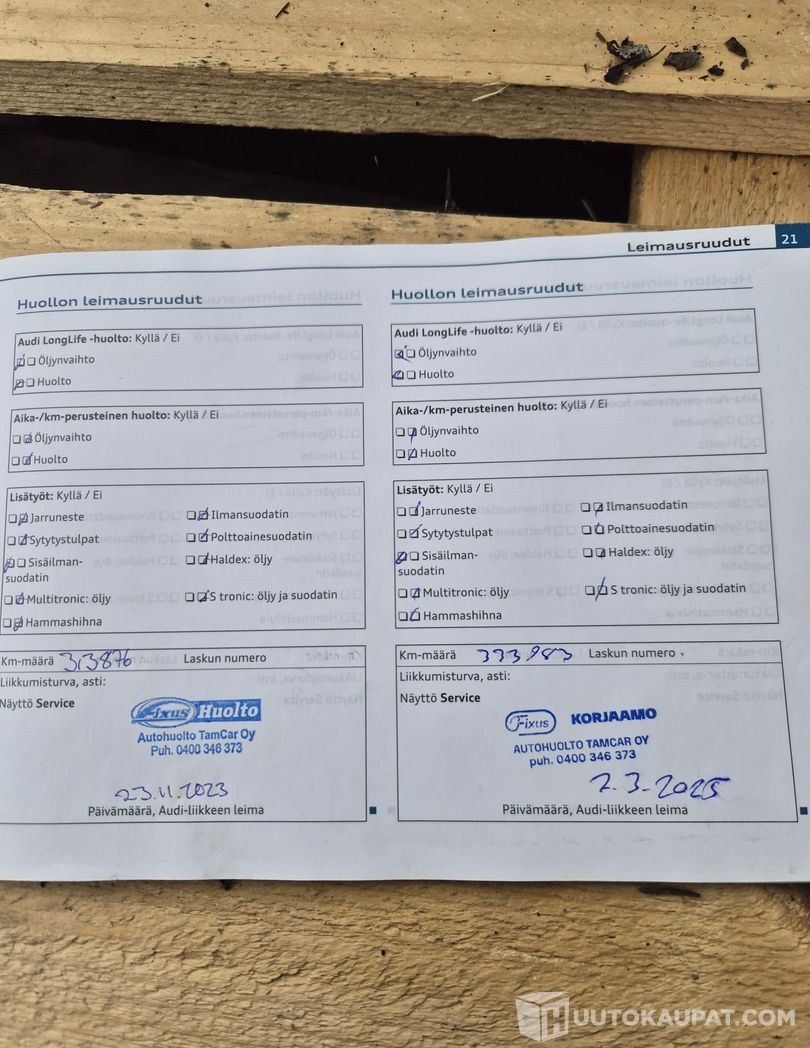 Leimausruudut 21
Huollon leimausruudut
Audi LongLife -huolto: Kyllä / Ei
Öljynvaihto
Huolto
Aika-/km-perusteinen huolto: Kyllä / Ei
Öljynvaihto
Huolto
Lisätyöt: Kyllä / Ei
Jarruneste
Ilmansuodatin
Sytytystulpat
Polttoainesuodatin
Sisäilman-
suodatin
Haldex: öljy
Multitronic: öljy
S tronic: öljy ja suodatin
Hammashihna
Km-määrä 313876 Laskun numero
Liikkumisturva, asti:
Näyttö Service
Fixus Huolto
Autohuolto TamCar Oy
Puh. 0400 346 373
23.11.2023
Päivämäärä, Audi-liikkeen leima
Huollon leimausruudut
Audi LongLife -huolto: Kyllä / Ei
Öljynvaihto
Huolto
Aika-/km-perusteinen huolto: Kyllä / Ei
Öljynvaihto
Huolto
Lisätyöt: Kyllä / Ei
Jarruneste
Ilmansuodatin
Sytytystulpat
Polttoainesuodatin
Sisäilman-
suodatin
Haldex: öljy
Multitronic: öljy
S tronic: öljy ja suodatin
Hammashihna
Km-määrä 333983 Laskun numero
Liikkumisturva, asti:
Näyttö Service
Fixus KORJAAMO
AUTOHUOLTO TAMCAR OY
puh. 0400 346 373
2.3.2025
Päivämäärä, Audi-liikkeen leima
HUUTOKAUPAT.COM